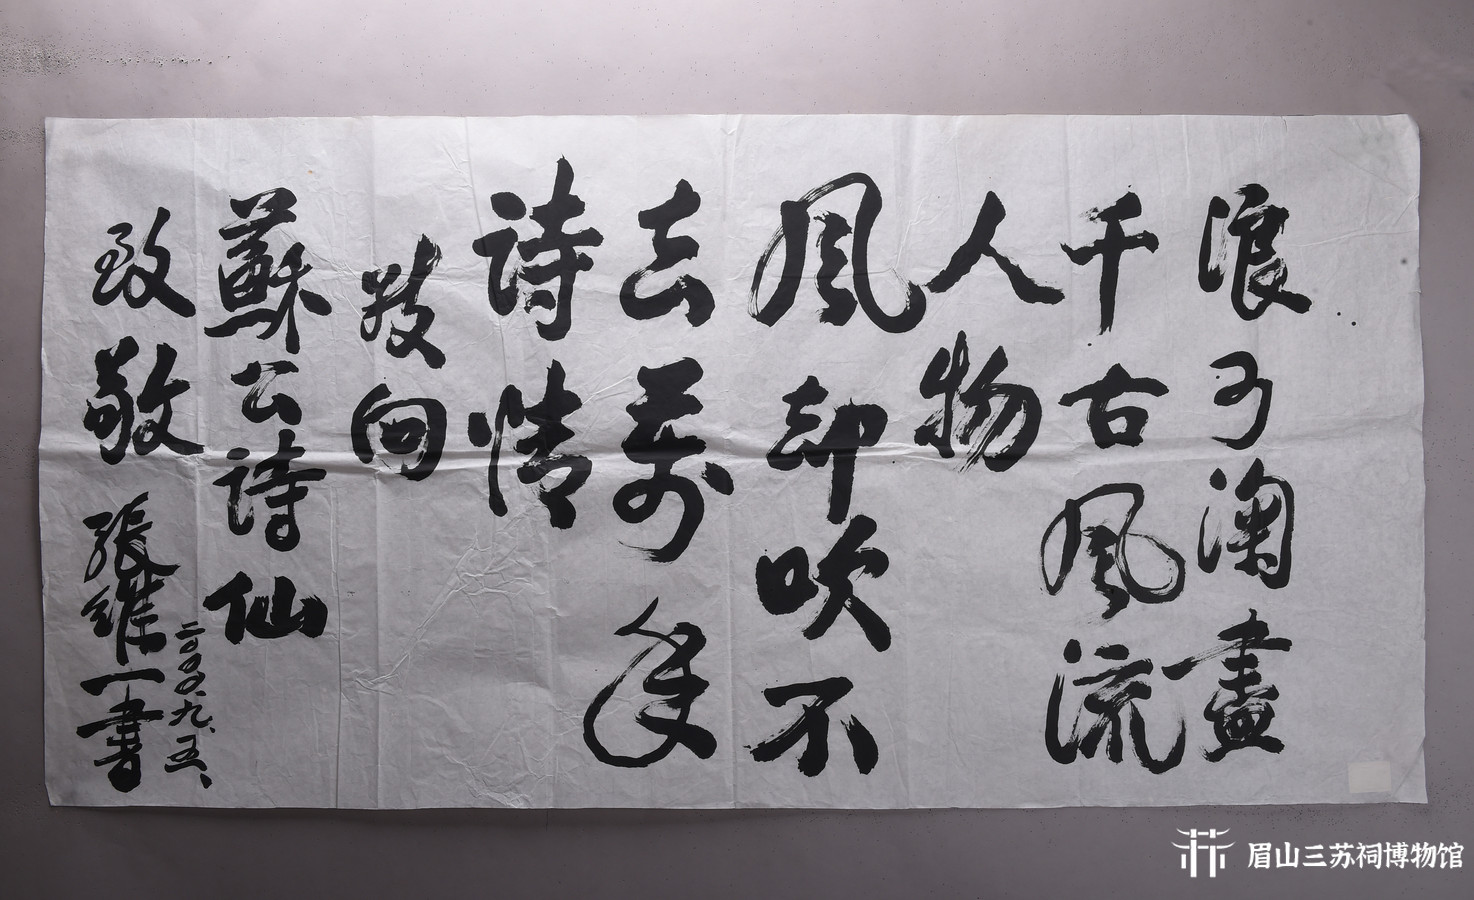 浪可淘盡
千古風流
人物
風却吹不
去萬年
詩情
敬向
蘇公詩仙
致敬 張維一書
二000.九.五、
眉山三苏祠博物馆